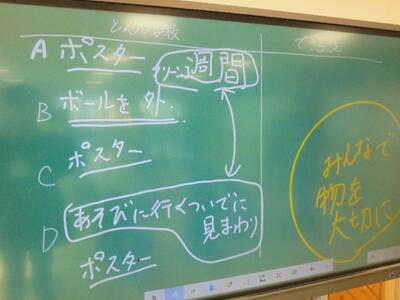 どんな学校
できること
A ポスター
週間
B ボールを外.
C ポスター
D あそびに行くついでに
見まわり
ポスター
みんなで
物を
大切に